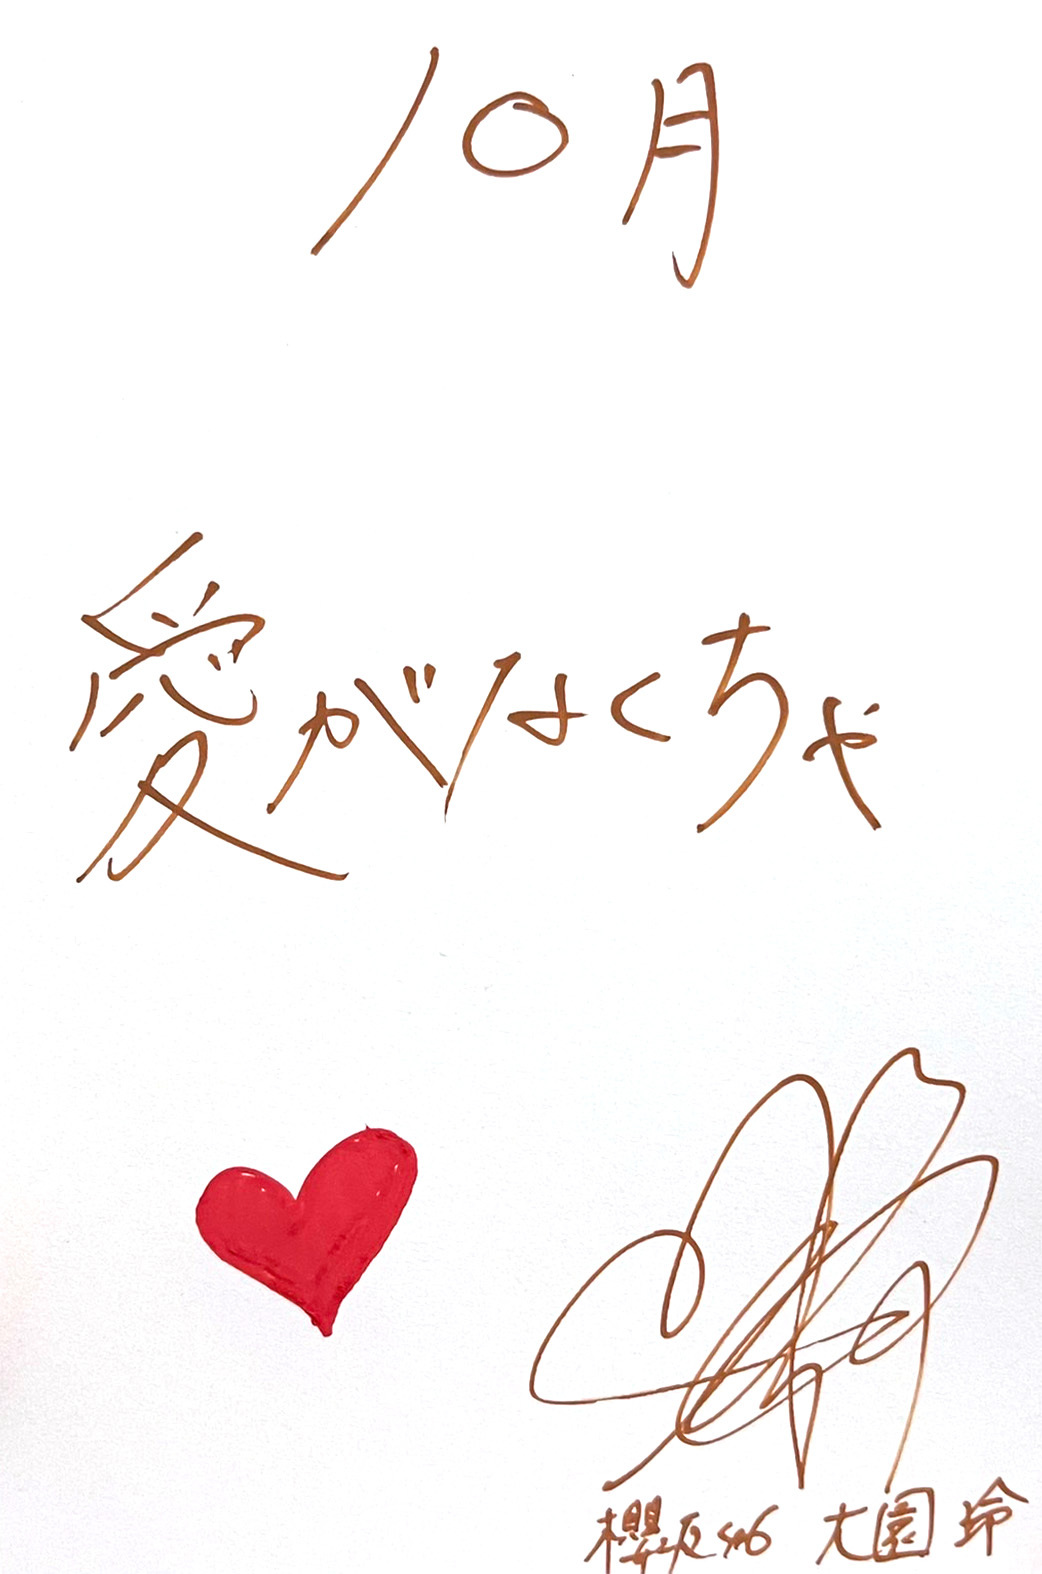 10月
愛がなくちゃ
櫻坂46 大園 玲